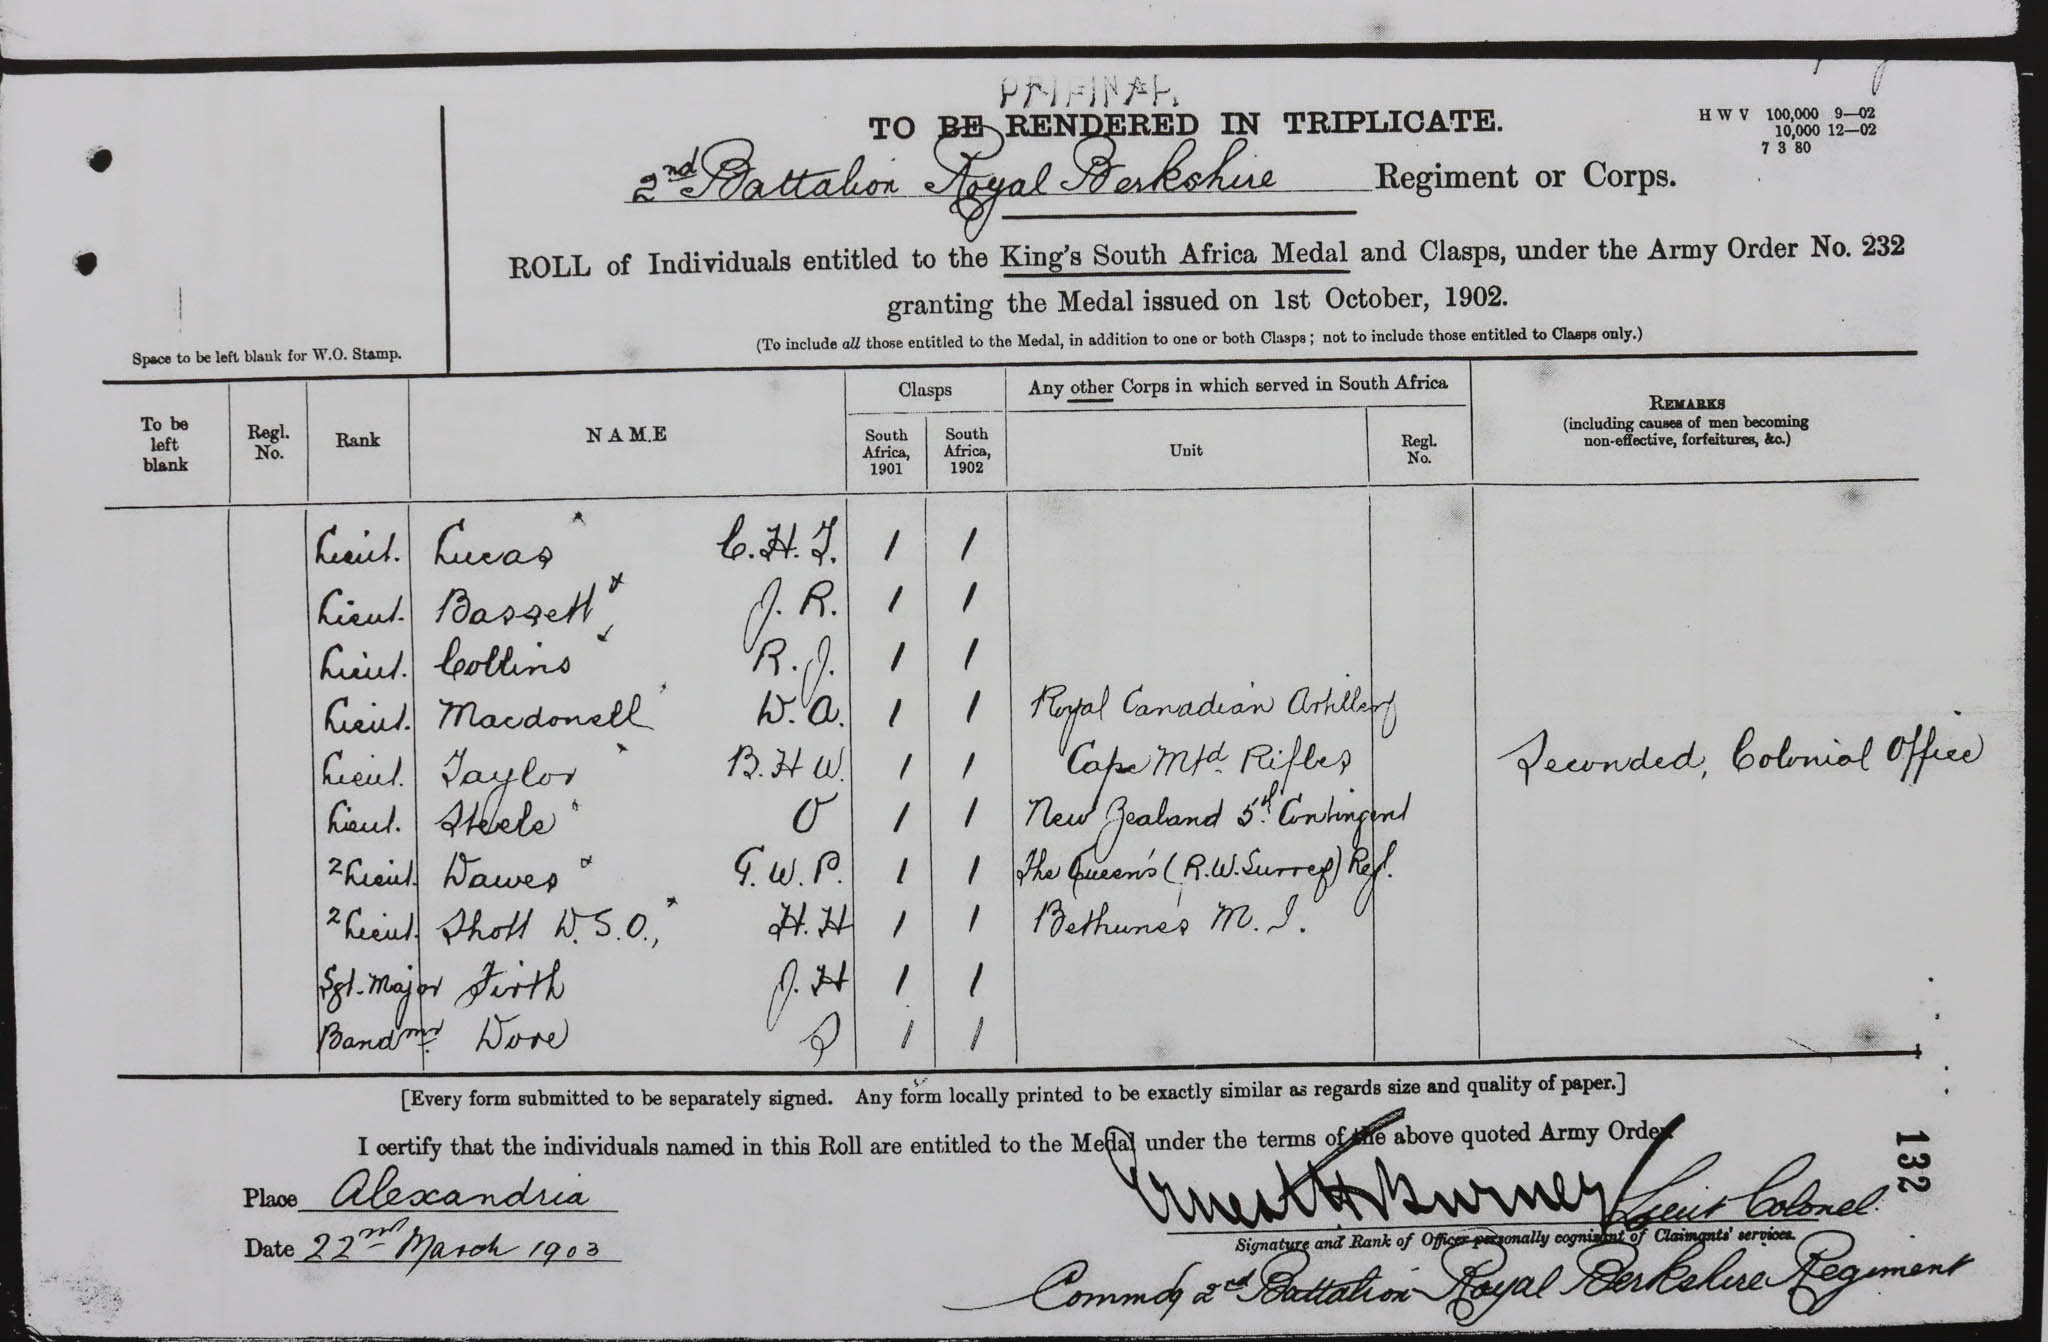 ORIGINAL
TO BE RENDERED IN TRIPLICATE.
H W V 100,000 9—02
10,000 12—02
7 3 80
2nd Battalion Royal Berkshire Regiment or Corps.
ROLL of Individuals entitled to the King's South Africa Medal and Clasps, under the Army Order No. 232
granting the Medal issued on 1st October, 1902.
(To include all those entitled to the Medal, in addition to one or both Clasps; not to include those entitled to Clasps only.)
Space to be left blank for W.O. Stamp.
To be left blank Regl. No. Rank NAME Clasps South Africa, 1901 South Africa, 1902 Any other Corps in which served in South Africa Unit Regl. No. REMARKS (including causes of men becoming non-effective, forfeitures, &c.)
Lieut. Lucas C. H. T. 1 1
Lieut. Bassett J. R. 1 1
Lieut. Collins R. J. 1 1
Lieut. Macdonell W. A. 1 1 Royal Canadian Artillery
Lieut. Taylor B. H W. 1 1 Cape Mtd. Rifles Seconded, Colonial Office
Lieut. Steele O 1 1 New Zealand 5th Contingent
2 Lieut. Dawes G. W. P. 1 1 The Queen's (R. W. Surrey) Regt.
2 Lieut. Shott D. S. O., H. H 1 1 Bethune's M. I.
Sgt. Major Firth J. H 1 1
Bandmr. Dore 1 1
[Every form submitted to be separately signed. Any form locally printed to be exactly similar as regards size and quality of paper.]
I certify that the individuals named in this Roll are entitled to the Medal under the terms of the above quoted Army Order.
Place Alexandria
Date 22nd March 1903
Burney Lieut Colonel.
Signature and Rank of Officer personally cognizant of Claimants' services.
Commdg 2nd Battalion Royal Berkshire Regiment
132